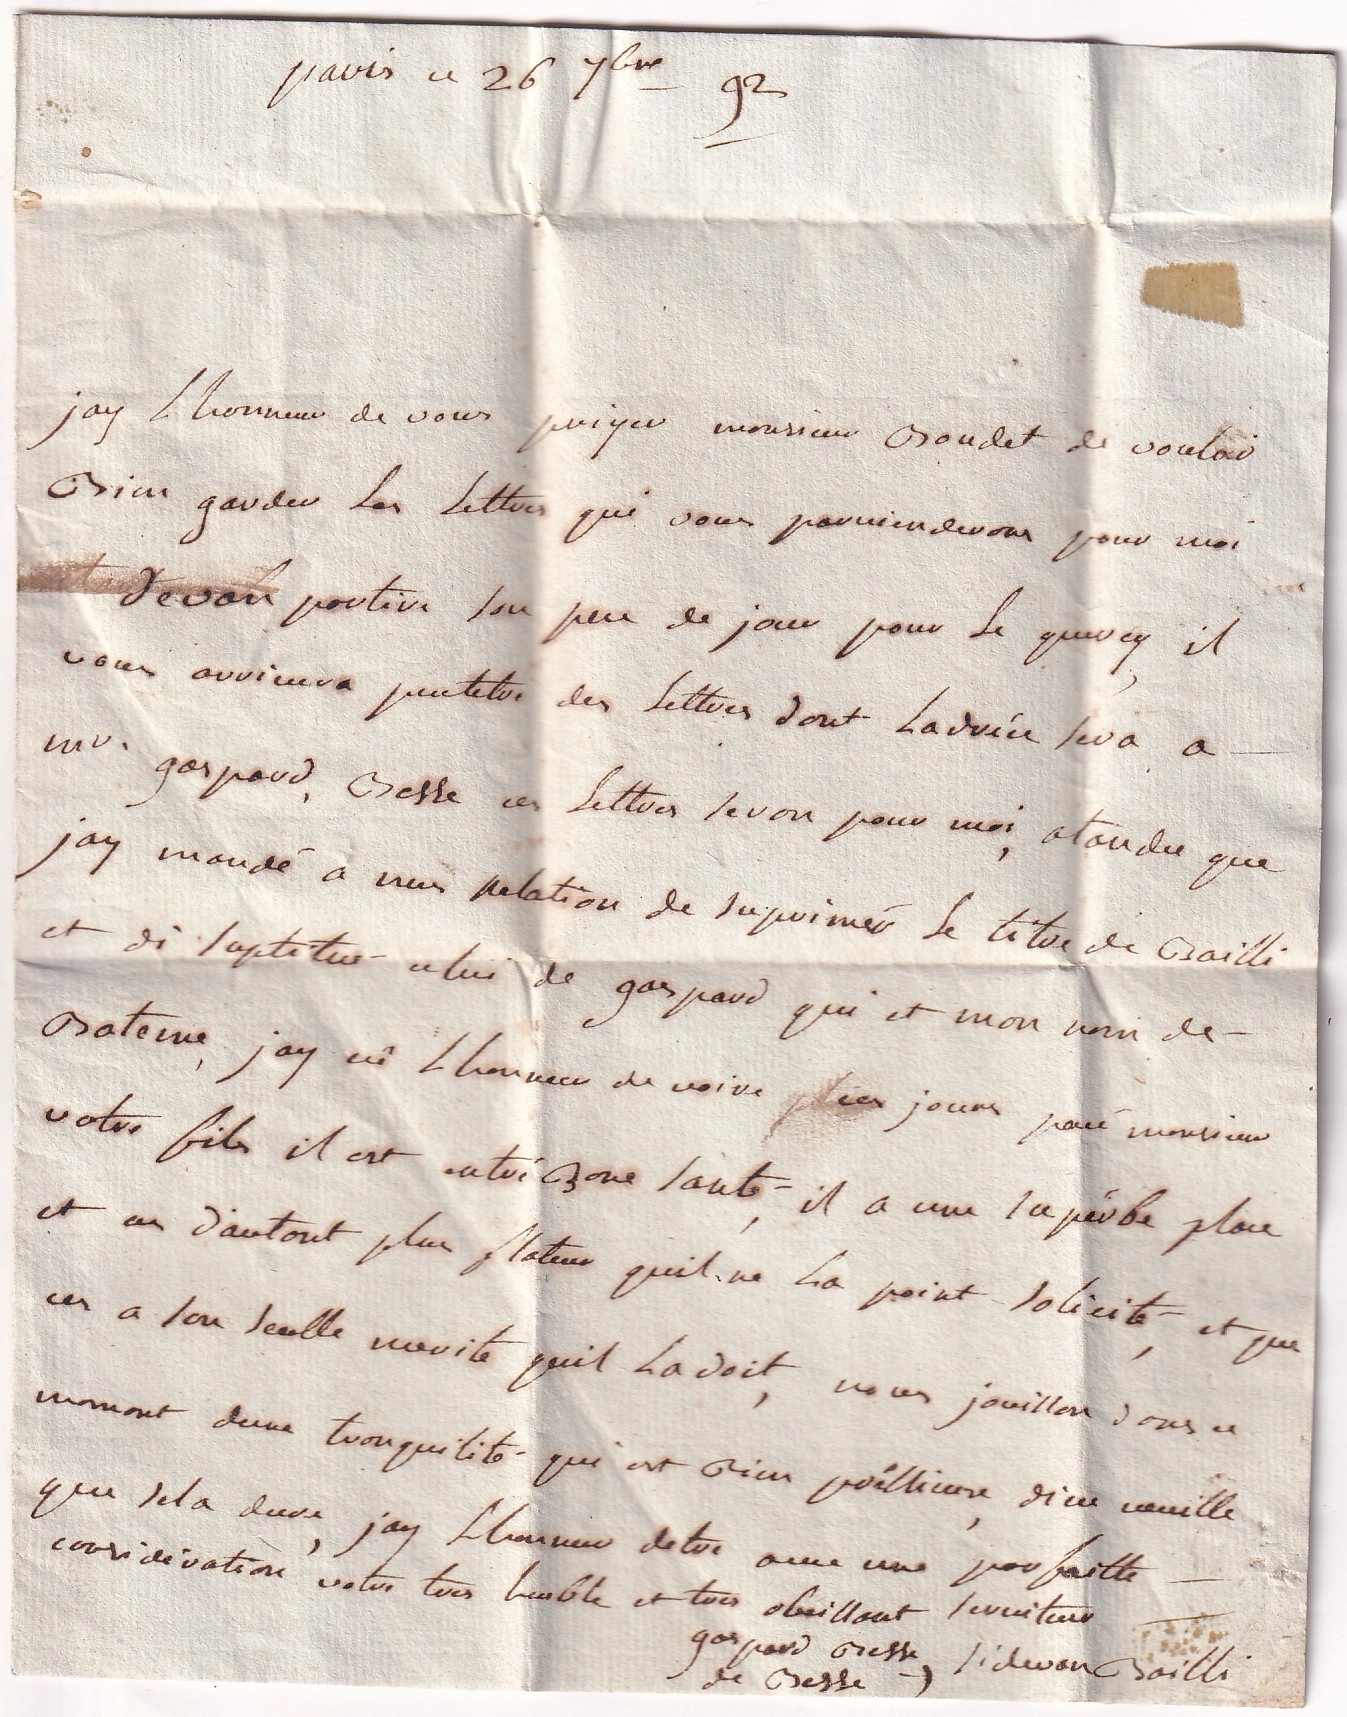 paris ce 26 7bre 92
jay Lhonneur de vous priyer monsieur Boudet de vouloir
Bien garder les Lettres qui vous parvienderons pour moi
devan partire sou peu de jour pour le quercy, il
vous arrivera peutetre des Lettres dont Ladrece sera a
mr. gaspard, Besse ces Lettres seron pour moi, atandu que
jay mandé a mes relation de suprimér le titre de Bailli
et di suptituè celui de gaspard qui et mon nom de
Bateme, jay eû Lhonneur de voire ces jours pacé monsieur
votre fils il est en tré Bone santé, il a une supérbe place
et ces d'autant plus flateur quil ne La point solicité, et que
ces a son seulle merite quil La doit, nous jouisson dans ce
moment dune tranquilité qui est Bien prêtieuse, dieu veuille
que sela dure, jay Lhonneur detre avec une parfaitte
considération votre tres humble et tres obeissant serviteur
gaspard Besse, sidevan Bailli
de Besse